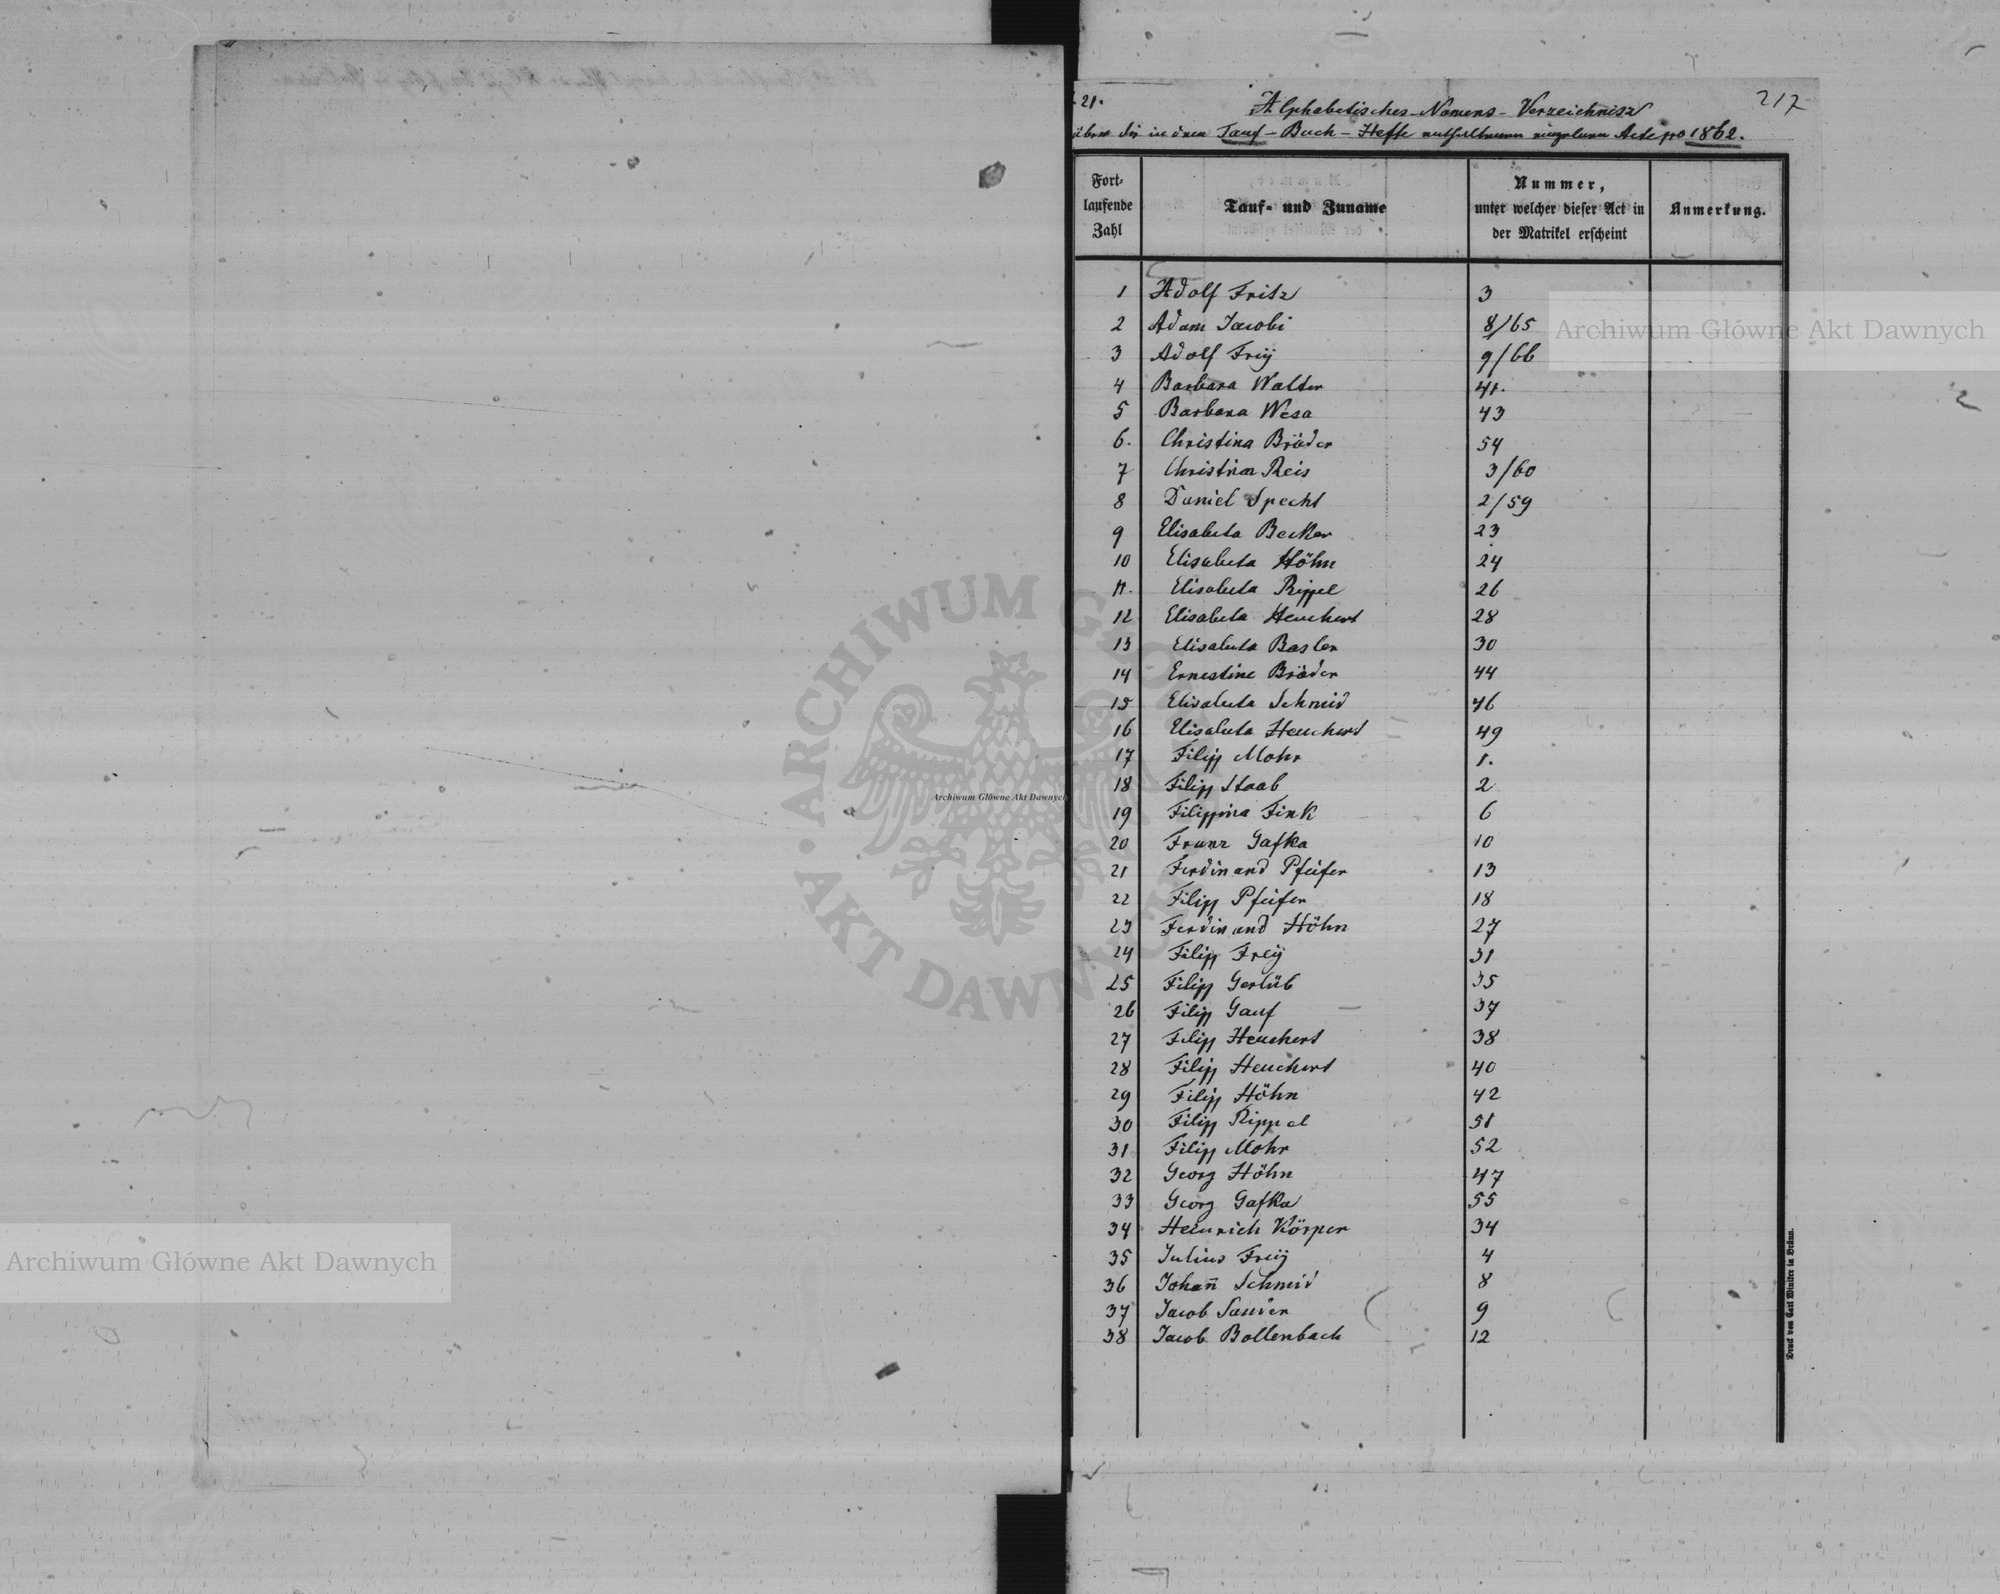 21.
217
Alphabetisches-Namens-Verzeichnisz
über die in dem Tauf-Buch-Hefte enthaltenen einzelnen Acte pro 1862.
Fort-
laufende
Zahl
Tauf- und Zuname
Nummer,
unter welcher dieser Act in
der Matrikel erscheint
Anmerkung.
1 Adolf Fritz 3
2 Adam Jacobi 8/65
3 Adolf Freÿ 9/66
4 Barbara Walter 41.
5 Barbara Wesa 43
6. Christina Bräder 54
7 Christina Reis 3/60
8 Daniel Specht 2/59
9 Elisabeta Becker 23
10 Elisabeta Höhn 24
11. Elisabeta Rippel 26
12 Elisabeta Heuchert 28
13 Elisabeta Basler 30
14 Ernestine Bräder 44
15 Elisabeta Schmid 46
16 Elisabeta Heuchert 49
17 Filipp Mohr 1.
18 Filipp Staab 2
19 Filippina Fink 6
20 Franz Gafka 10
21 Ferdinand Pfeifer 13
22 Filipp Pfeifer 18
23 Ferdinand Höhn 27
24 Filipp Freÿ 31
25 Filipp Gerlüb 35
26 Filipp Gauf 37
27 Filipp Heuchert 38
28 Filipp Heuchert 40
29 Filipp Höhn 42
30 Filipp Rippel 51
31 Filipp Mohr 52
32 Georg Höhn 47
33 Georg Gafka 55
34 Heinrich Körper 34
35 Julius Freÿ 4
36 Johañ Schmid 8
37 Jacob Sauder 9
38 Jacob Bollenbach 12
Druck von Carl Winiker in Brünn.
Archiwum Główne Akt Dawnych
ARCHIWUM GŁÓWNE AKT DAWNYCH
Archiwum Główne Akt Dawnych
Archiwum Główne Akt Dawnych